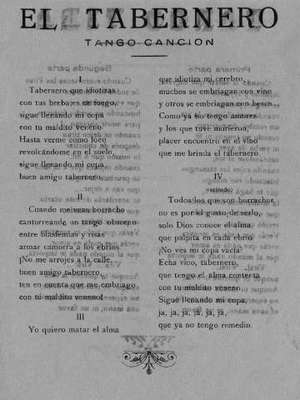 EL TABERNERO
TANGO-CANCION
I
Tabernero que idiotizas
con tus brebajes de fuego,
sigue llenando mi copa
con tu maldito veneno
Hasta verme como loco
revolcándome en el suelo,
sigue llenando mi copa
buen amigo tabernero.
II
Cuando me veas borracho
canturreando un tango obsceno
entre blasfemias y risas
armar camorra a los ebrios
¡No me arrojes a la calle,
buen amigo tabernero,
ten en cuenta que me embriago
con tu maldito veneno!
III
Yo quiero matar el alma
que idiotiza mi cerebro,
muchos se embriagan con vino
y otros se embriagan con besos
Como ya no tengo amores
y los que tuve murieron,
placer encuentro en el vino
que me brinda el tabernero.
IV
Todos los que son borrachos
no es por el gusto de serlo,
solo Dios conoce el alma
que palpita en cada ebrio
¿No ves mi copa vacía?
Echa vino, tabernero,
que tengo el alma contenta
con tu maldito veneno
Sigue llenando mi copa,
ja, ja, ja, ja, ja, ja,
que ya no tengo remedio.